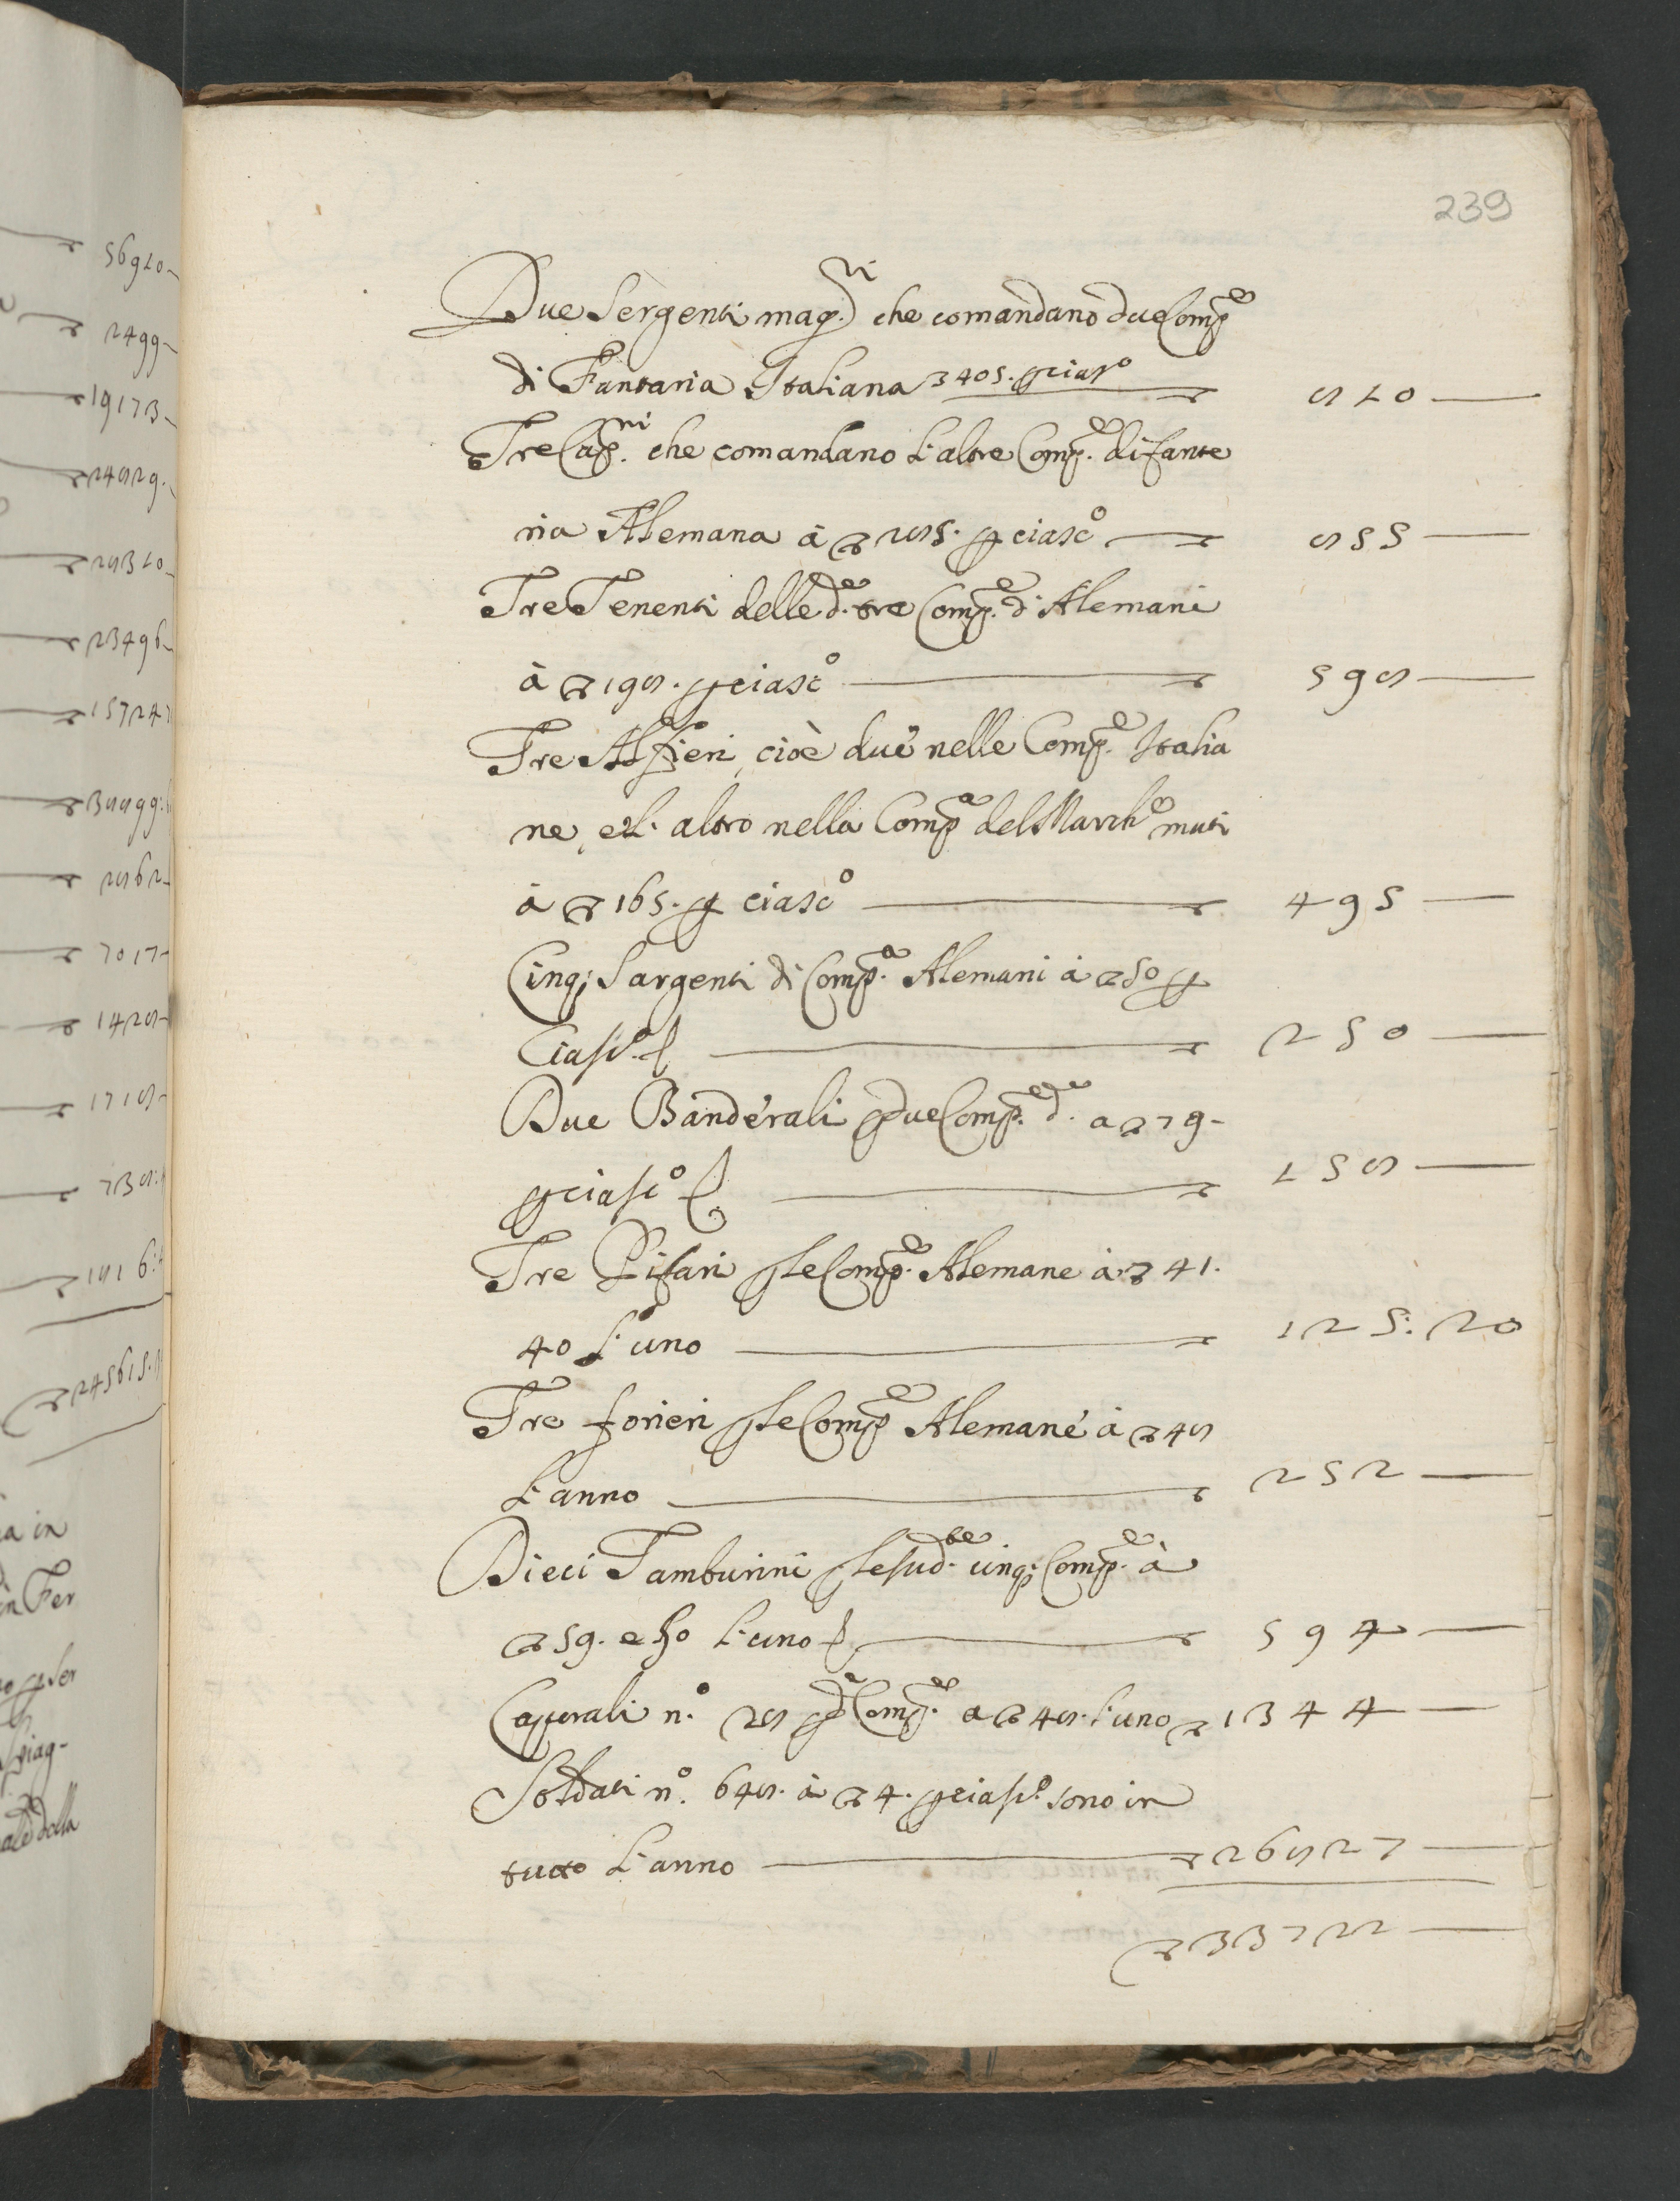 56910
2499
19173
24829.
28310
23496
15724
38899:
2862
7017
1428
1718
738:
1816:
245615.
a in
in Fer
viag-
della
239
Due Sergenti magri. che comandano due Compe
di Fantaria Italiana 405. p ciasco 810
Tre Capni. che comandano l'altre Compe. di fante
ria Alemana à 285. p ciasco 855
Tre Tenenti delle de. tre Compe. d'Alemani
à 198. p ciasco 598
Tre Alfieri, cioè due nelle Compe. Italia
ne, e l'altro nella Compa del Marche muti
à 165. p ciasco 495
Cinq; Sargenti di Compa. Alemani à 50 p
Ciasco. 250
Due Banderali p due Compe. de. a 79-
p ciasco 158
Tre Pifari p le Compe. Alemane à 41.
40 l'uno 125:20
Tre forieri p le Compe Alemane à 48
l'anno 252
Dieci Tamburini p le sudte. cinq; Compe. à
59. e 50 l'uno 594
Caporali n.o 28 p de Compe. a 48. l'uno 1344
Soldati n.o 648. à 4. p ciasco. sono in
tutto l'anno 26827
33722